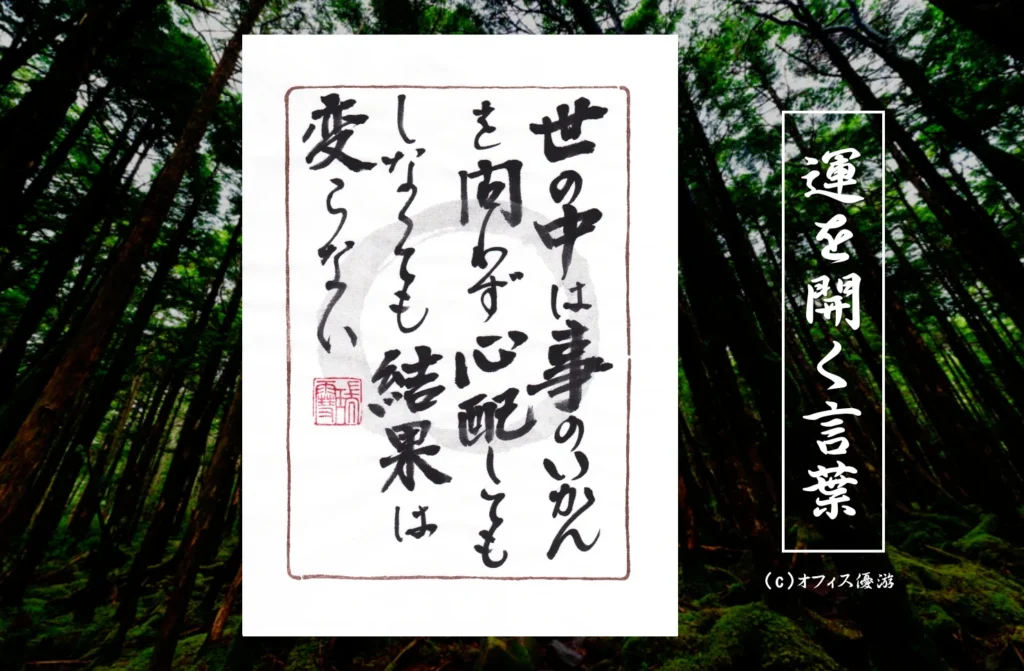 世の中は事のいかん
を問わず心配しても
しなくても結果は
変らない
運を開く言葉
(c)オフィス優游